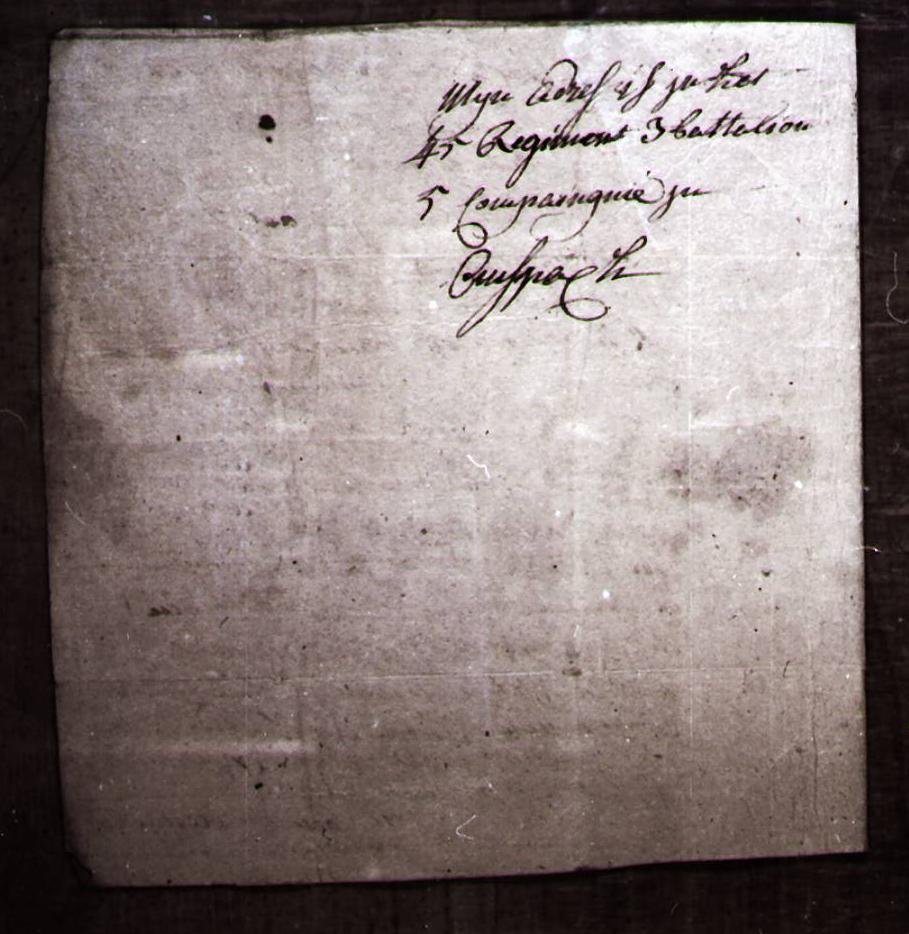 Myn adres is jn het
45 Regiment 3 battalion
5 Compaingnie jn
Anspach